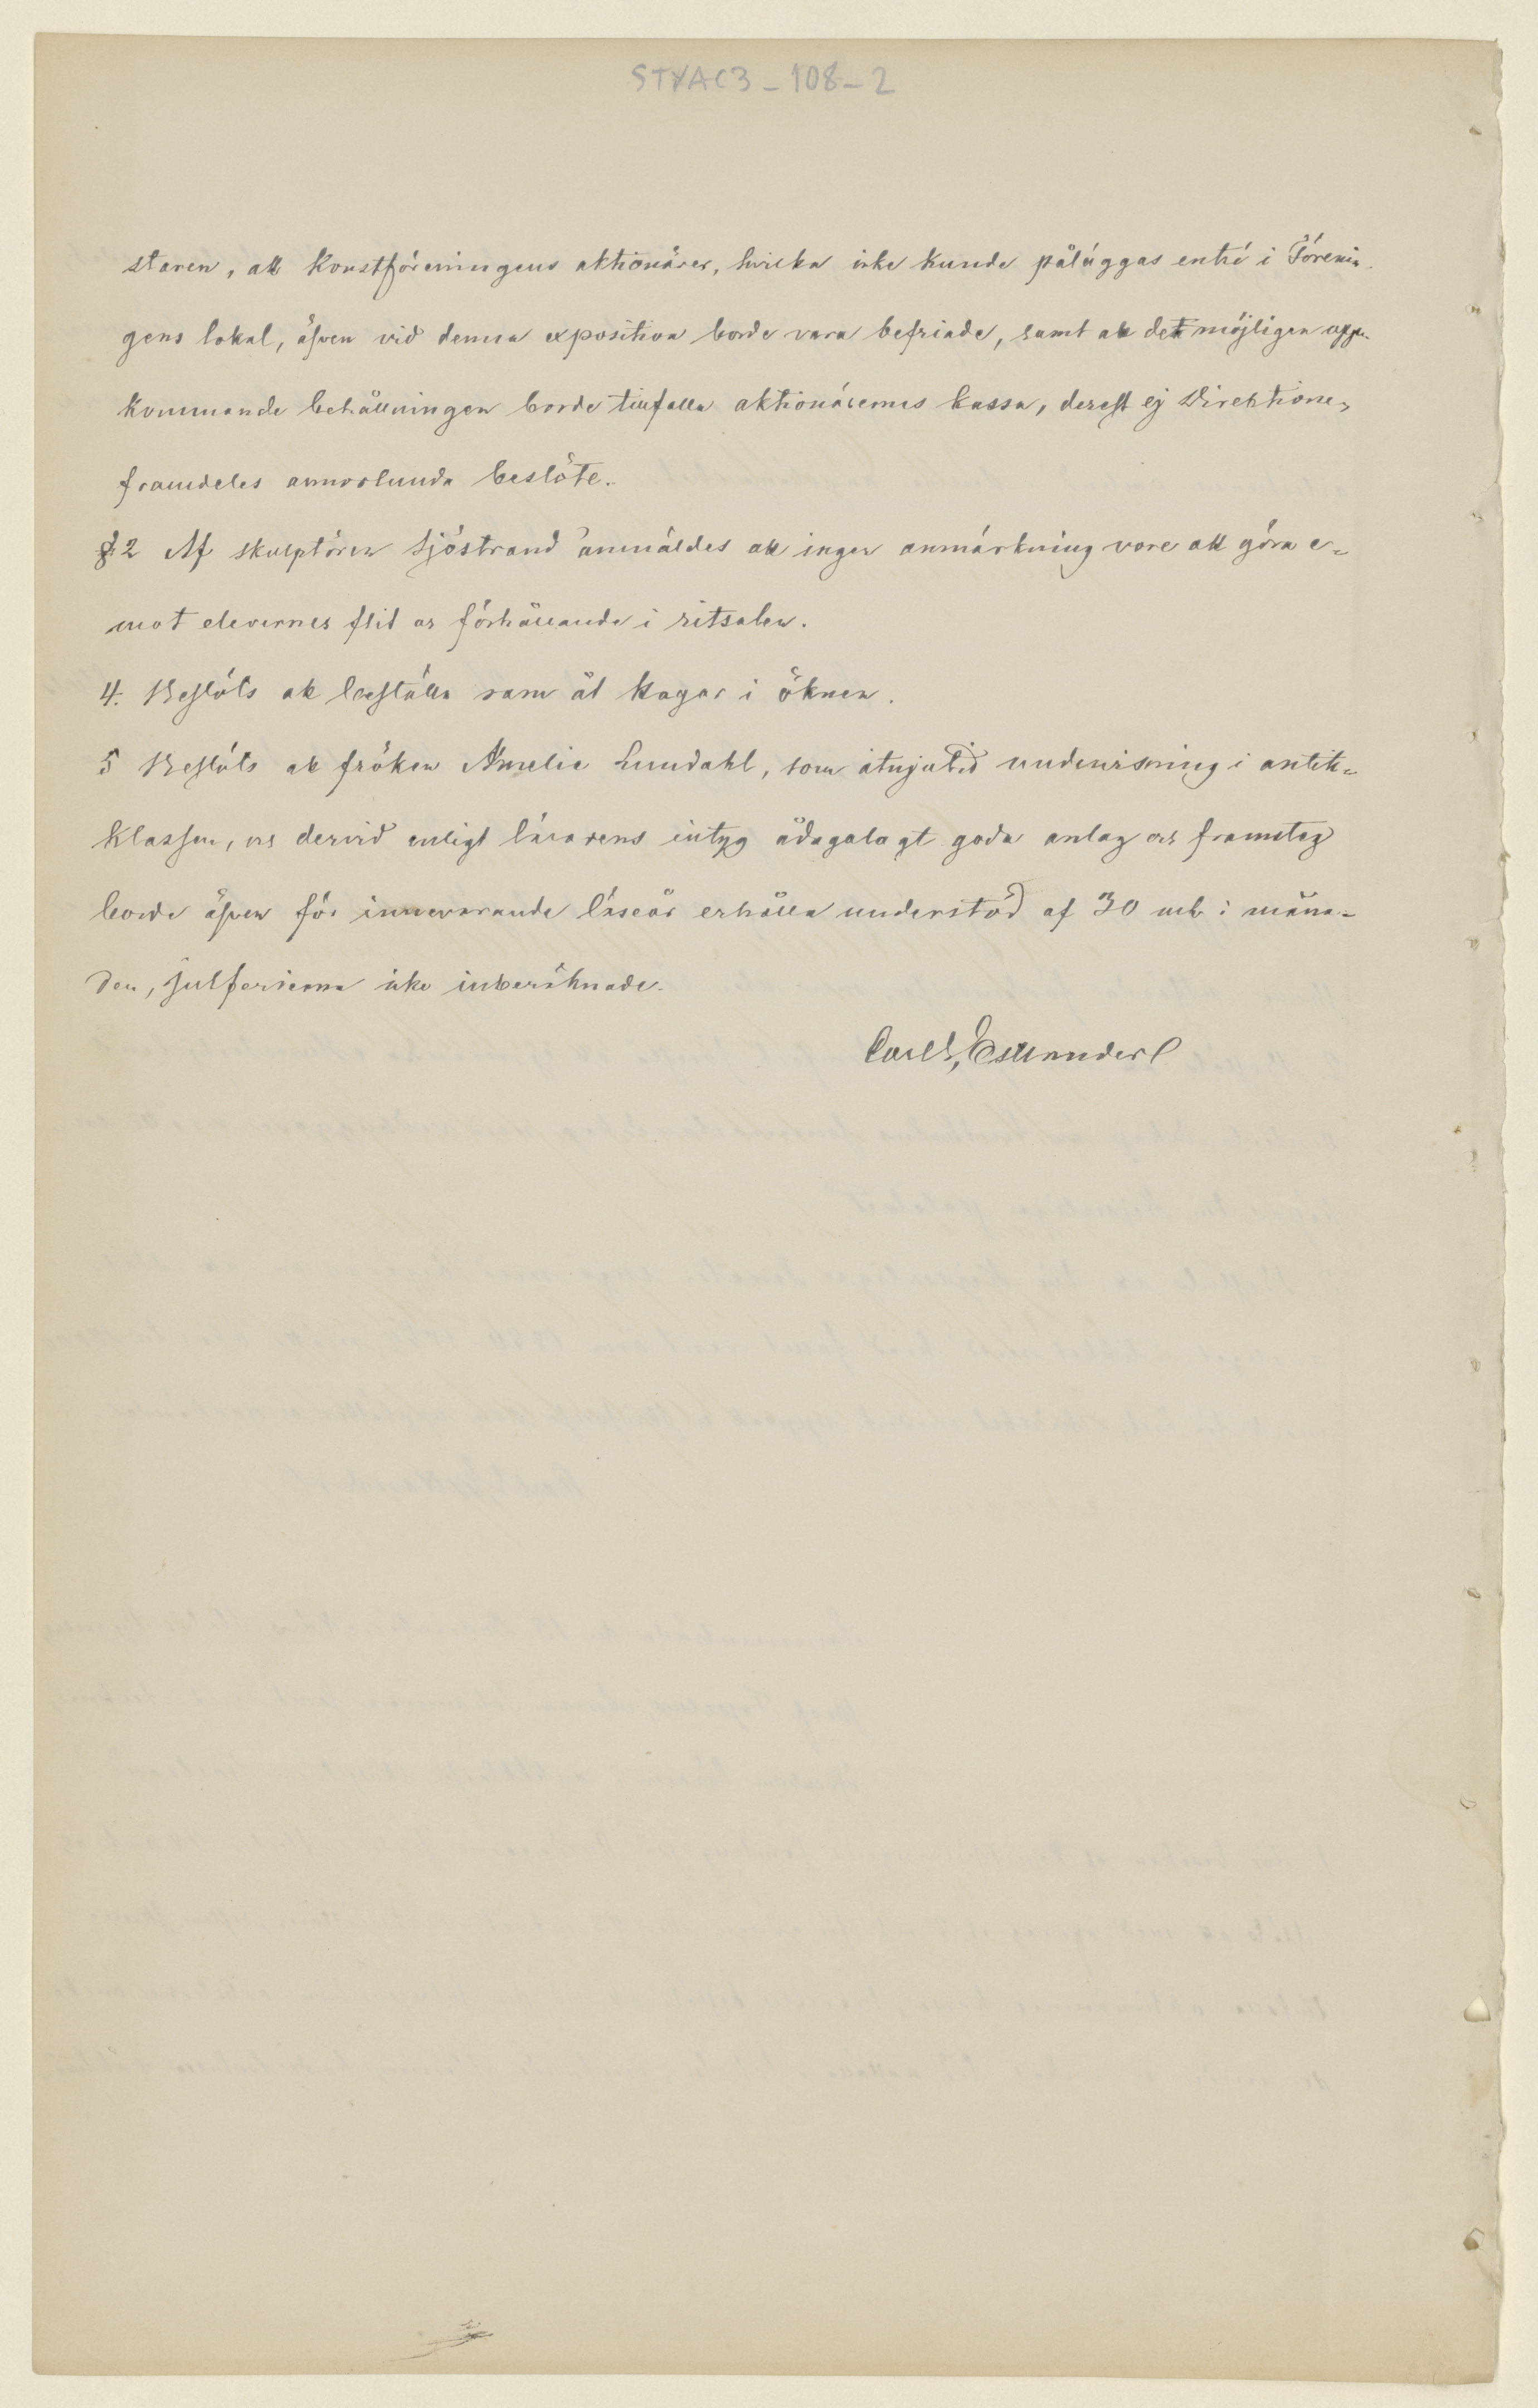 STYAC3-108-2
staren, att Konstföreningens aktionärer, hvilka icke kunde påläggas entré i Förenin-
gens lokal, äfven vid denna exposition borde vara befriade, samt att det möjligen upp-
kommande behållningen borde tillfalla aktionärernes kassa, derest ej Direktionen
framdeles annorlunda beslöte.
§2 Af skulptören Sjöstrand anmäldes att ingen anmärkning vore att göra e-
mot elevernes flit oc förhållande i ritsalen.
4. Beslöts att beställa ram åt Hagar i öknen.
5 Beslöts att fröken Amelie Lundahl, som åtnjutid undervisning i antik-
klassen, oc dervid enligt lärarens intyg ådagalagt goda anlag och framsteg
borde äfven för innevarande läseår erhålla understöd af 30 mk i måna-
den, julferierna icke inberäknade.
Carl G. Estlander